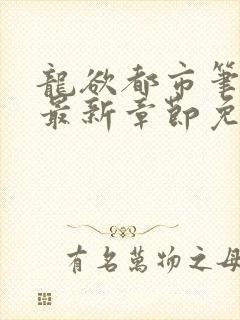 龍欲都市筆
最新章節免
有名萬物之母